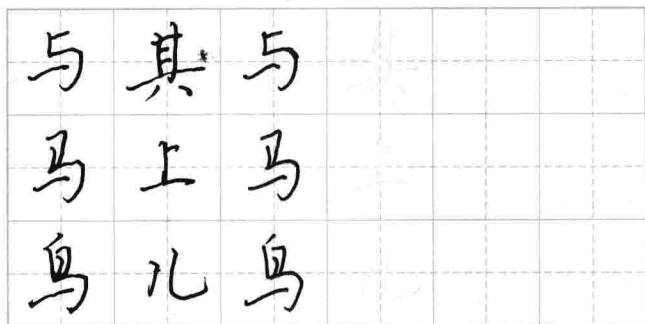 与其与
马上马
鸟儿鸟